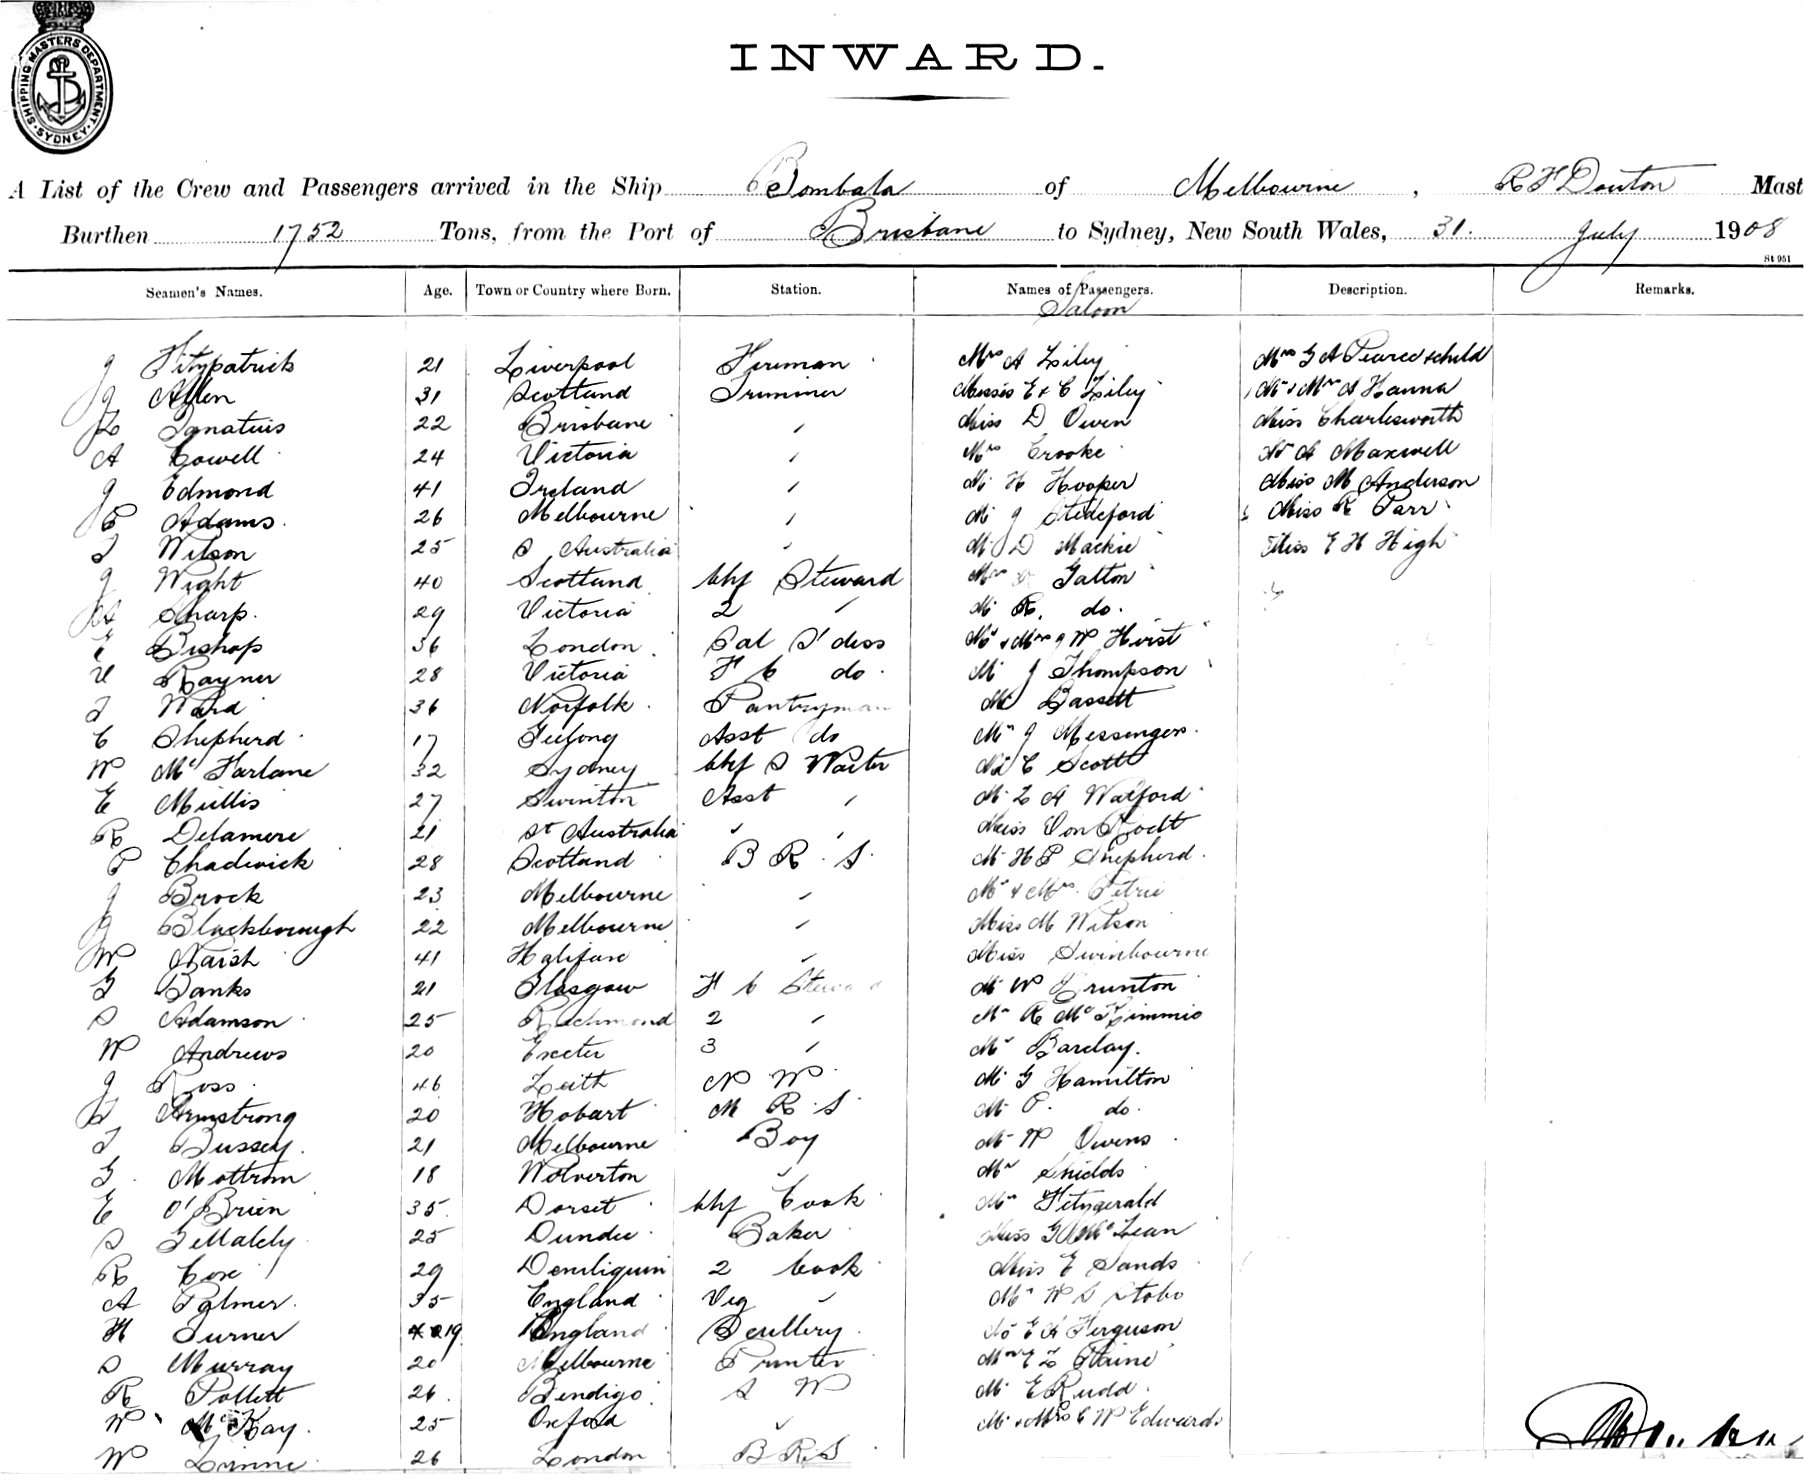 SHIPPING MASTERS DEPARTMENT · SYDNEY ·
INWARD.
A List of the Crew and Passengers arrived in the Ship Bombala of Melbourne, R H Douton Mast
Burthen 1752 Tons, from the Port of Brisbane to Sydney, New South Wales, 31. July 1908
St 951
Seamen's Names. Age. Town or Country where Born. Station. Names of Passengers. Description. Remarks.
Saloon
J Fitzpatrick 21 Liverpool Fireman Mrs A Liley Mrs G A Pearce & child
J Allen 31 Scotland Trimmer Misses E & C Liley Mr & Mrs A Hanna
L Ignatius 22 Brisbane " Miss D Owen Miss Charlesworth
A Cowell 24 Victoria " Mrs Crooke Mr A Maxwell
J Edmond 41 Ireland " Mr H Hooper Miss M Anderson
P Adams 26 Melbourne " Mr J Stedeford Miss R Parr
T Wilson 25 S Australia " Mr D Mackie Miss E H High
J Wight 40 Scotland Chf Steward Mrs Galton
A Sharp. 29 Victoria 2 " Mr R. do.
E Bishop 36 London Sal S'dess Mr & Mrs J W Hirst
V Rayner 28 Victoria F C do Mr J Thompson
T Ward 36 Norfolk Pantryman Mr Bassett
C Shepherd 17 Geelong Asst do Mr J Messenger
W McFarlane 32 Sydney Chf S Waiter Mr C Scott
E Mullis 27 Swinton Asst " Mr L A Watford
R Delamere 21 St Australia " " Miss Von Rodt
P Chadwick 28 Scotland B R S. Mr H P Shepherd.
J Brock 23 Melbourne " Mr & Mrs Petrie
J Blackborough 22 Melbourne " Miss M Wilson
W Naish 41 Halifax " Miss Swinbourne
G Banks 21 Glasgow F C Steward Mr W Grunton
S Adamson 25 Richmond 2 " Mr R McKimmie
W Andrews 20 Exeter 3 " Mr Barclay.
J Ross 46 Leith N W Mr G Hamilton
Armstrong 20 Hobart M R S Mr P. do.
T Bussey. 21 Melbourne Boy Mr W Owens
G Mottram 18 Wolverton " Mr Shields
E O'Brien 35 Dorset Chf Cook Mr Fitzgerald
S Gellately 25 Dundee Baker Miss McLean
R Cox 29 Deniliquin 2 Cook Miss E Sands
A Palmer 35 England Veg " Mr W S Stobo
H Turner 19 England Scullery Mr E A Ferguson
S Murray 20 Melbourne Printer Mrs E L Paine
R Pollett 26 Bendigo S W Mr E Rudd
W McKay. 25 Oxford " Mr & Mrs C W Edwards
W Linne 26 London B R S